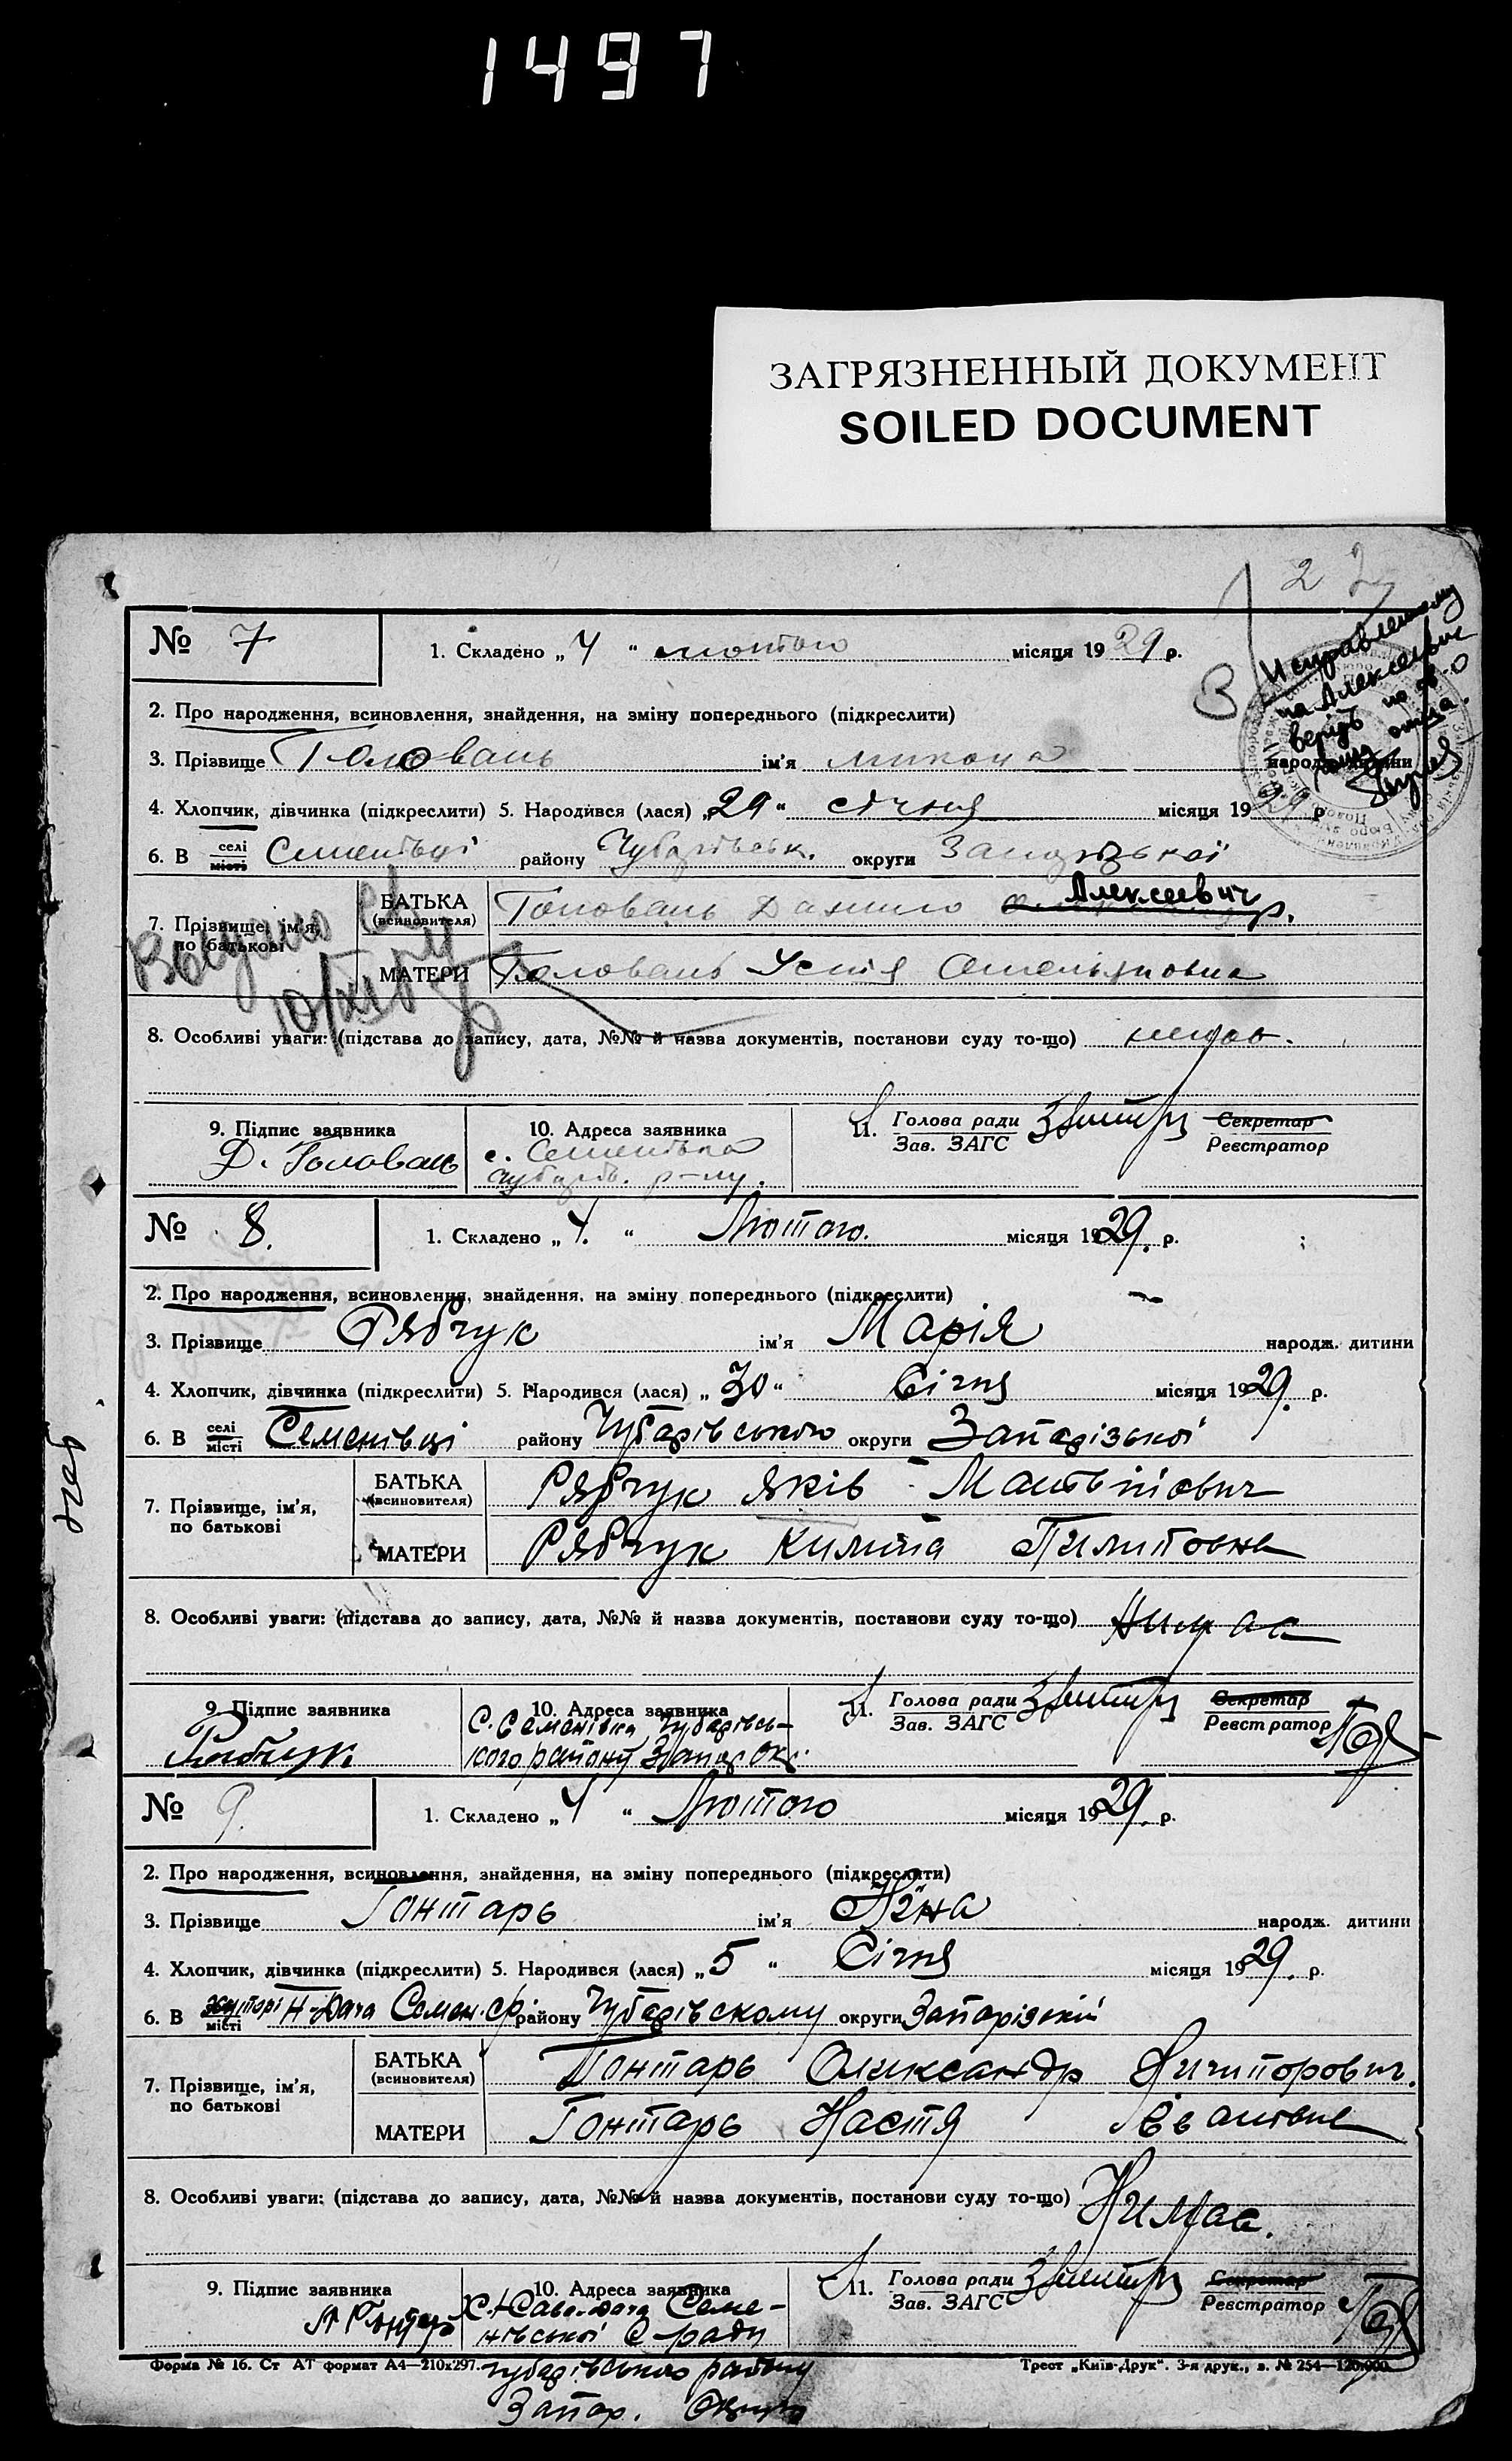 1497
ЗАГРЯЗНЕННЫЙ ДОКУМЕНТ
SOILED DOCUMENT
2
Исправленному
на Алексеевич
№ 7
1. Складено „ 4 “ лютого місяця 1929 р.
2. Про народження, всиновлення, знайдення, на зміну попереднього (підкреслити)
3. Прізвище Головань ім'я Микола народж. дитини
4. Хлопчик, дівчинка (підкреслити) 5. Народився (лася) „ 29 “ січня місяця 1929 р.
6. В селі місті Семенівці району Чубарівськ. округи Запорізької
7. Прізвище, ім'я, по батькові
БАТЬКА (всиновителя) Головань Данило Алексеевич
МАТЕРИ Головань Устя Омельяновна
8. Особливі уваги: (підстава до запису, дата, №№ й назва документів, постанови суду то-що) немає.
9. Підпис заявника 10. Адреса заявника 11. Голова ради Зав. ЗАГС Секретар Реєстратор
Д. Головань
с. Семенівка
Чубарів. р-ну.
№ 8.
1. Складено „ 4. “ Лютого. місяця 1929. р.
2. Про народження, всиновлення, знайдення, на зміну попереднього (підкреслити)
3. Прізвище Рябчук ім'я Марія народж. дитини
4. Хлопчик, дівчинка (підкреслити) 5. Народився (лася) „ 30 “ Січня місяця 1929. р.
6. В селі місті Семенівці району Чубарівського округи Запарізької
7. Прізвище, ім'я, по батькові
БАТЬКА (всиновителя) Рябчук Яків Матьвійович
МАТЕРИ Рябчук Килина Пилиповна
8. Особливі уваги: (підстава до запису, дата, №№ й назва документів, постанови суду то-що) Нимає
9. Підпис заявника 10. Адреса заявника 11. Голова ради Зав. ЗАГС Секретар Реєстратор
Рябчук
С. Семенівка Чубарівсь-
кого району Запар. Окр.
№ 9.
1. Складено „ 4 “ Лютого місяця 1929. р.
2. Про народження, всиновлення, знайдення, на зміну попереднього (підкреслити)
3. Прізвище Гонтарь ім'я народж. дитини
4. Хлопчик, дівчинка (підкреслити) 5. Народився (лася) „ 5 “ Січня місяця 1929. р.
6. В хуторі місті Н-Дача Семен. с/р. району Чубарівскому округи Запарізькій
7. Прізвище, ім'я, по батькові
БАТЬКА (всиновителя) Гонтарь Олександр Ничипорович.
МАТЕРИ Гонтарь Настя Івановна
8. Особливі уваги: (підстава до запису, дата, №№ й назва документів, постанови суду то-що) Нимає.
9. Підпис заявника 10. Адреса заявника 11. Голова ради Зав. ЗАГС Секретар Реєстратор
Гонтарь
Семе-
нівської С-ради
Чубарівського району
Запар. Округи
Форма № 16. Ст АТ формат А4—210х297.
Трест „Київ-Друк“. 3-я друк., з. № 254—120.000.